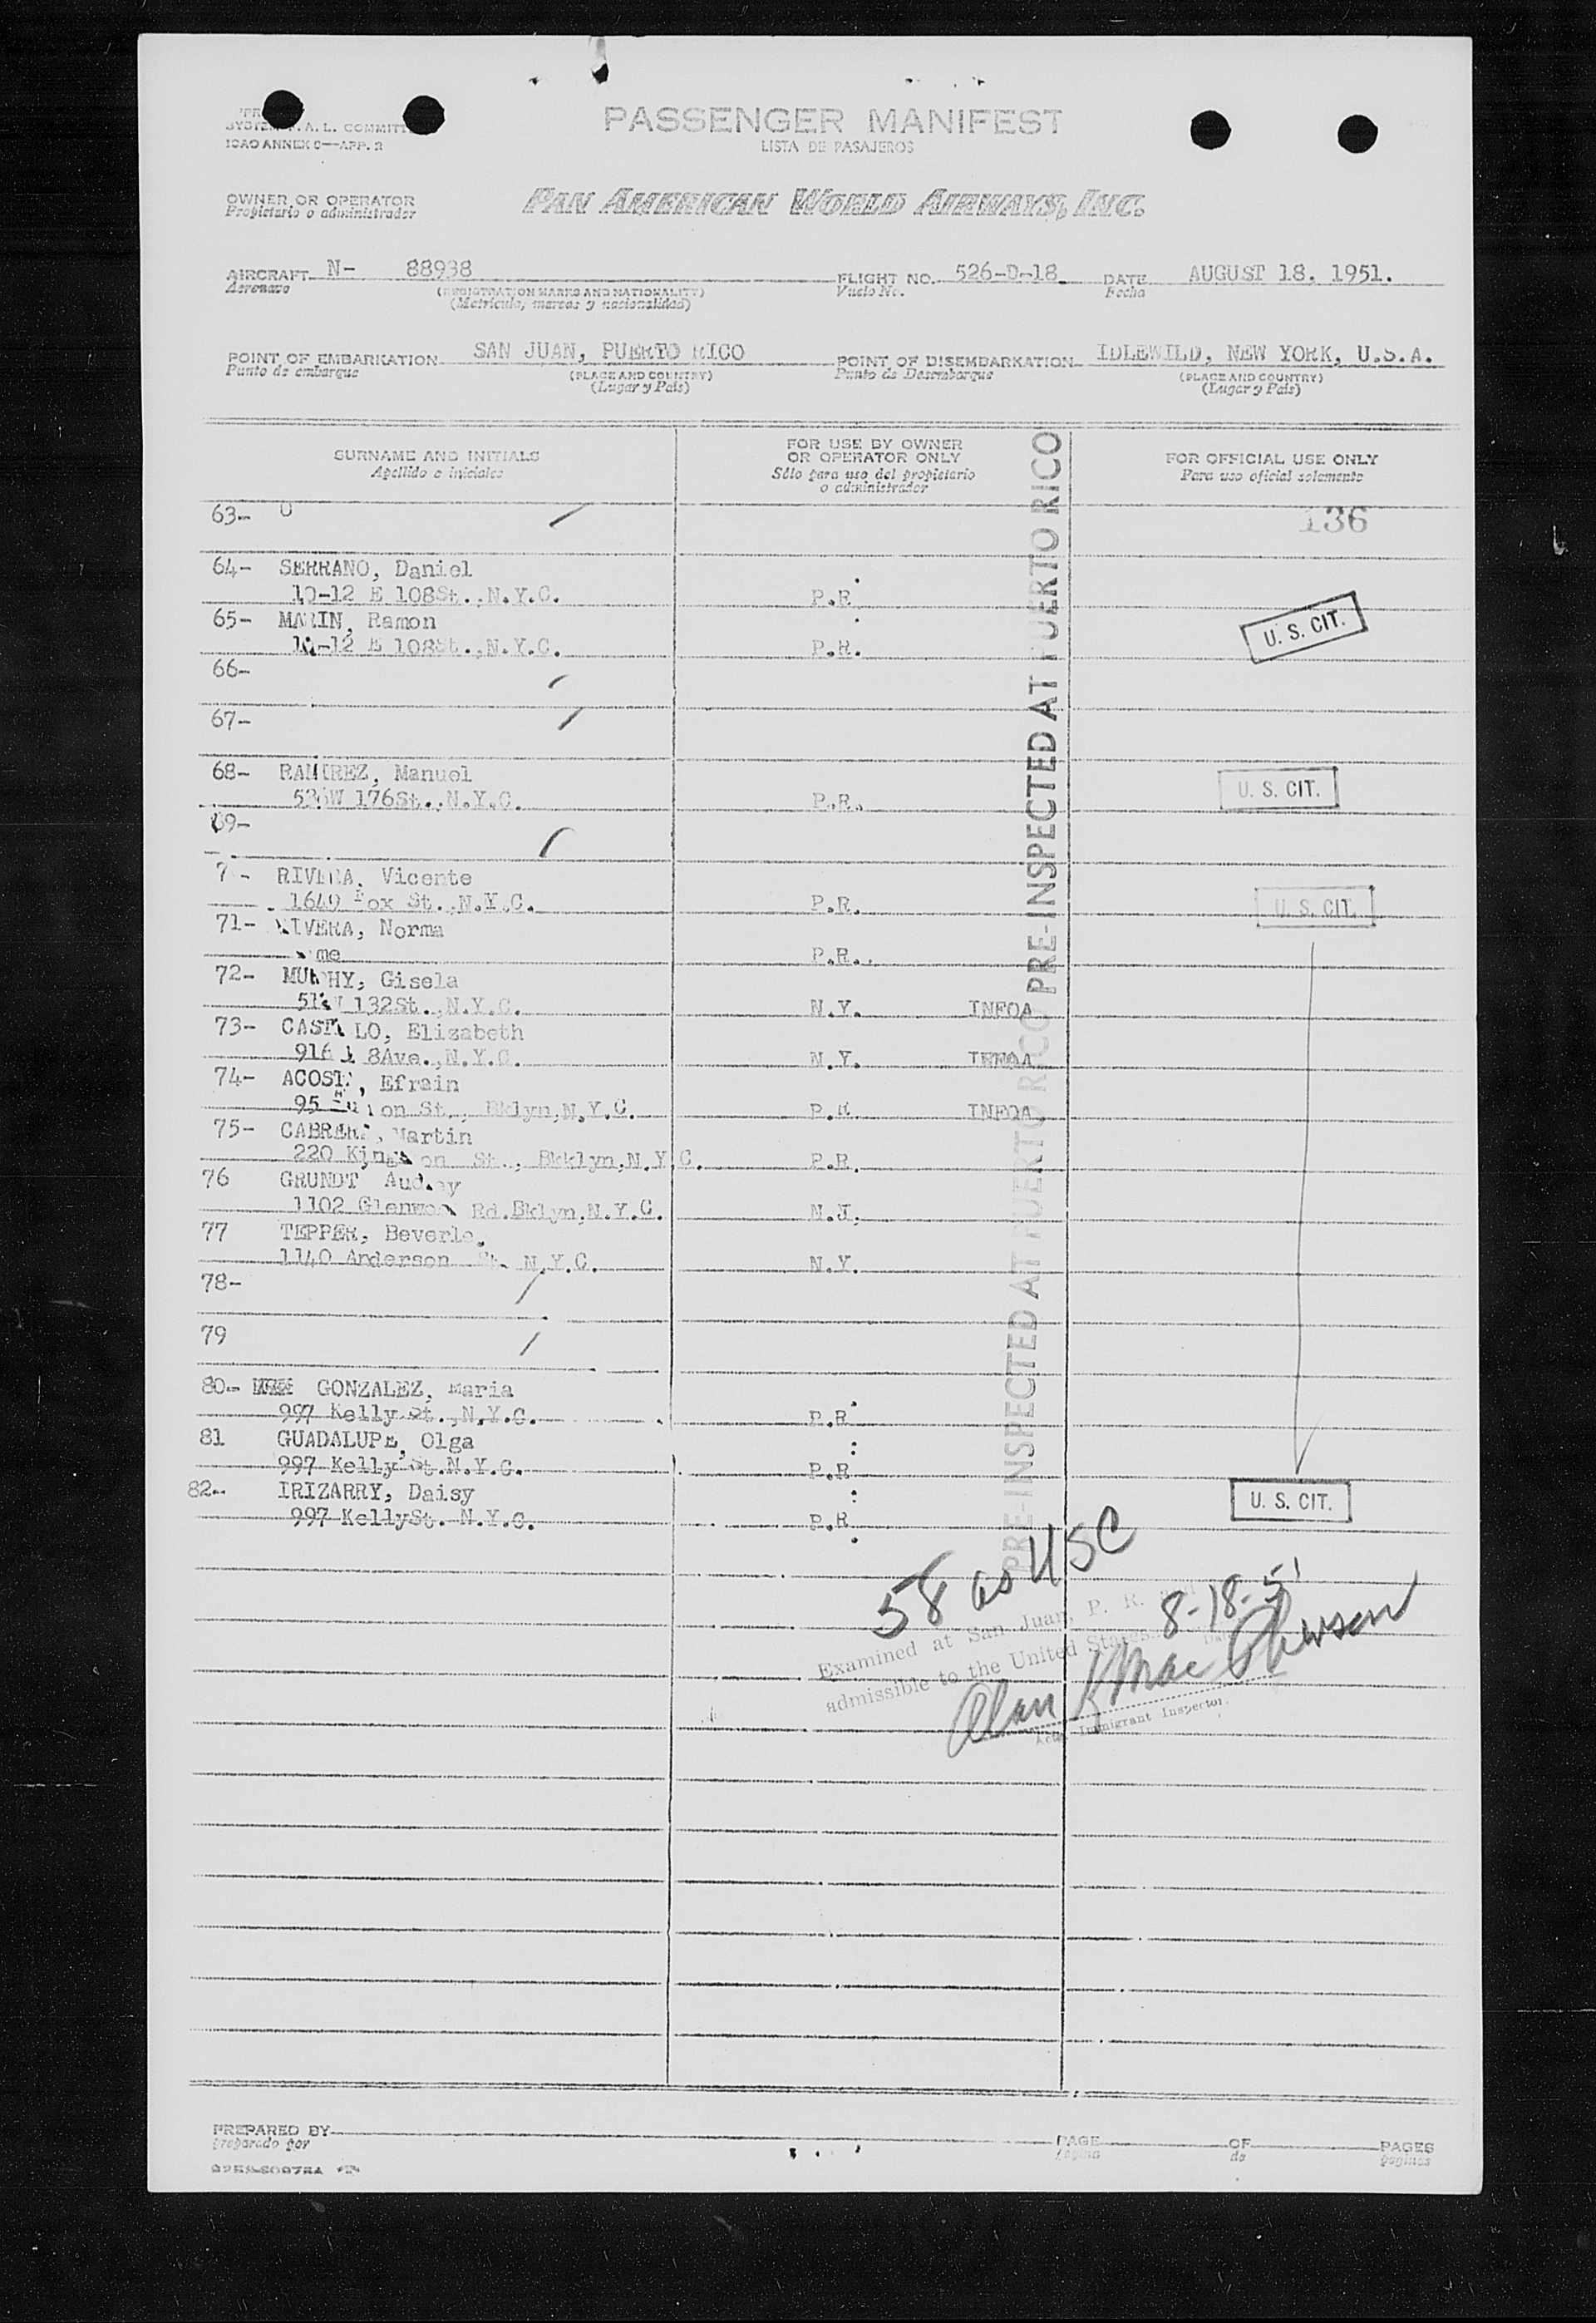 SYSTEM F.A.L. COMMITT
ICAO ANNEX 9—APP. 2
PASSENGER MANIFEST
LISTA DE PASAJEROS
OWNER OR OPERATOR
Propietario o administrador
PAN AMERICAN WORLD AIRWAYS, INC.
AIRCRAFT N- 88938 FLIGHT NO. 526-D-18 DATE AUGUST 18, 1951.
Aeronave (REGISTRATION MARKS AND NATIONALITY) Vuelo No. Fecha
(Matricula, marcas y nacionalidad)
POINT OF EMBARKATION SAN JUAN, PUERTO RICO POINT OF DISEMBARKATION IDLEWILD, NEW YORK, U.S.A.
Punto de embarque (PLACE AND COUNTRY) Punto de Desembarque (PLACE AND COUNTRY)
(Lugar y Pais) (Lugar y Pais)
SURNAME AND INITIALS
Apellido e iniciales
FOR USE BY OWNER
OR OPERATOR ONLY
Sólo para uso del propietario
o administrador
FOR OFFICIAL USE ONLY
Para uso oficial solamente
63-
136
64- SERRANO, Daniel
10-12 E 108St.,N.Y.C. P.R.
65- MARIN, Ramon U. S. CIT.
10-12 E 108St.,N.Y.C. P.R.
66-
67-
68- RAMIREZ, Manuel U. S. CIT.
W 176St.,N.Y.C. P.R.
69-
RIVERA, Vicente
St.,N.Y.C. P.R. U. S. CIT.
71- RIVERA, Norma
P.R.
72- MURPHY, Gisela
132St.,N.Y.C. N.Y. INFOA
73- CASTILLO, Elizabeth
8Ave.,N.Y.C. N.Y. INFOA
74- ACOSTA, Efrain
95 St., Bklyn,N.Y.C. P.R INFOA
75- CABRERA, Martin
220 Kingston St., Bkklyn,N.Y.C. P.R.
76 GRUNDT Audrey
1102 Glenwood Rd.Bklyn,N.Y.C. N.J.
77 TEPPER, Beverle
1140 Anderson N.Y.C. N.Y.
78-
79
80- GONZALEZ, Maria
997 Kelly St.,N.Y.C. P.R
81 GUADALUPE, Olga
997 Kelly St.N.Y.C. P.R
82- IRIZARRY, Daisy U. S. CIT.
997 KellySt. N.Y.C. P.R
PRE-INSPECTED AT PUERTO RICO
PRE-INSPECTED AT PUERTO RICO
58 as USC
8-18-51
Examined at San Juan, P. R.
admissible to the United States
Alan K MacPherson
Immigrant Inspector
PREPARED BY PAGE OF PAGES
preparado por página de paginas